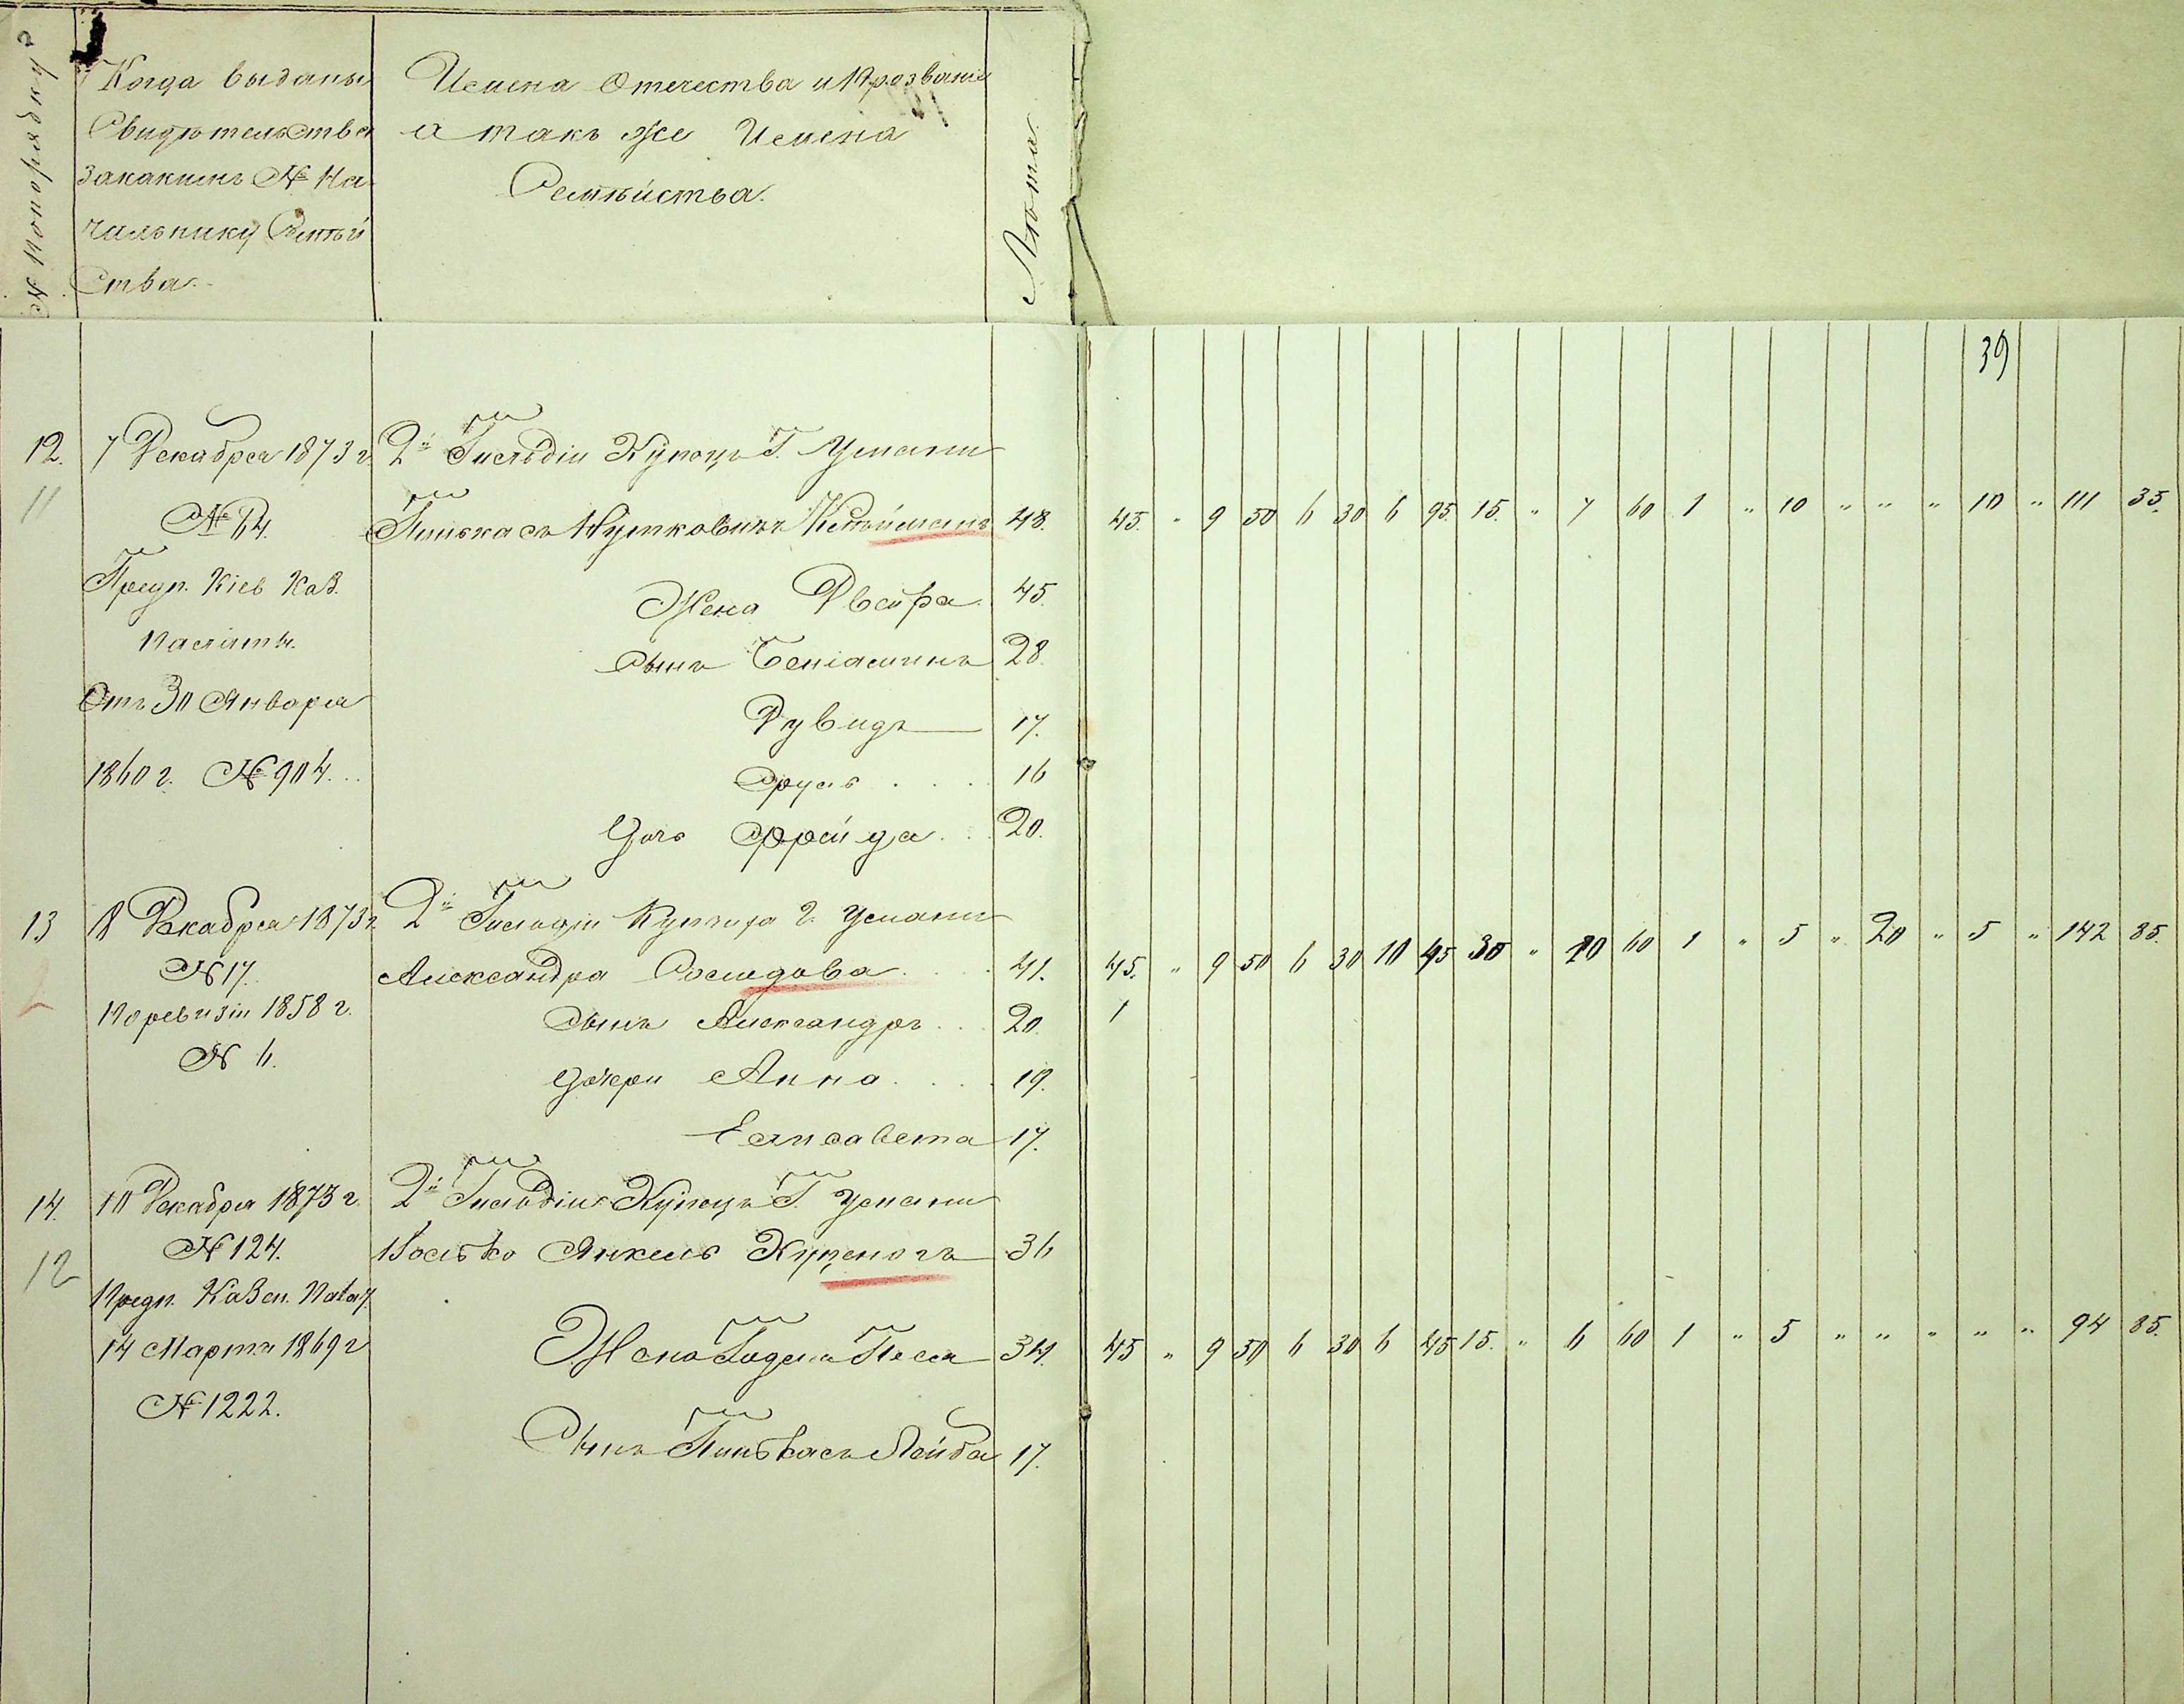 № по порядку
Когда выданы
Свидѣтельства
за какимъ № На
чальнику Семѣй
ства.
Имена Отечества и Прозваніи
а такъ же Имена
Семѣйства.
Лѣта.
39
12. 7 Декабря 1873 г. 2й Гильдіи Купецъ Г. Умани
11
№ 64. Пинькасъ Нутковичъ 48. 45. " 9 50 6 30 6 95. 15. " 7 60 1 " 10 " " " 10 " 111 35.
Предп. Кіев Каз. Жена Двейра. 45.
Палаты. Сынъ Беніаминъ 28.
Отъ 30 Января Дувидъ 17.
1860 г. № 904... Сруль . . . 16
Дочь Фрейда . . 20.
13 8 Декабря 1873 г. 2й Гильдіи Купчиха Г. Умани
№ 17. Александра . . . 41. 45. " 9 50 6 30 10 45 30 " 20 60 1 " 5 " 20 " 5 " 142 85.
По ревизіи 1858 г. Сынъ Александръ . . 20. 1
№ 6. Дочери Анна . . . . 19.
Елисавета 17.
14. 10 Декабря 1873 г. 2й Гильдіи Купецъ Г. Умани
12
№ 124. Іосько Янкель Куценогъ 36
Предп. Казен. Палат.
14 Марта 1869 г. Жена Песя 34. 45 " 9 50 6 30 6 45 15. " 6 60 1 " 5 " " " " " 94 85.
№ 1222.
Сынъ Пинькасъ Лейба 17.